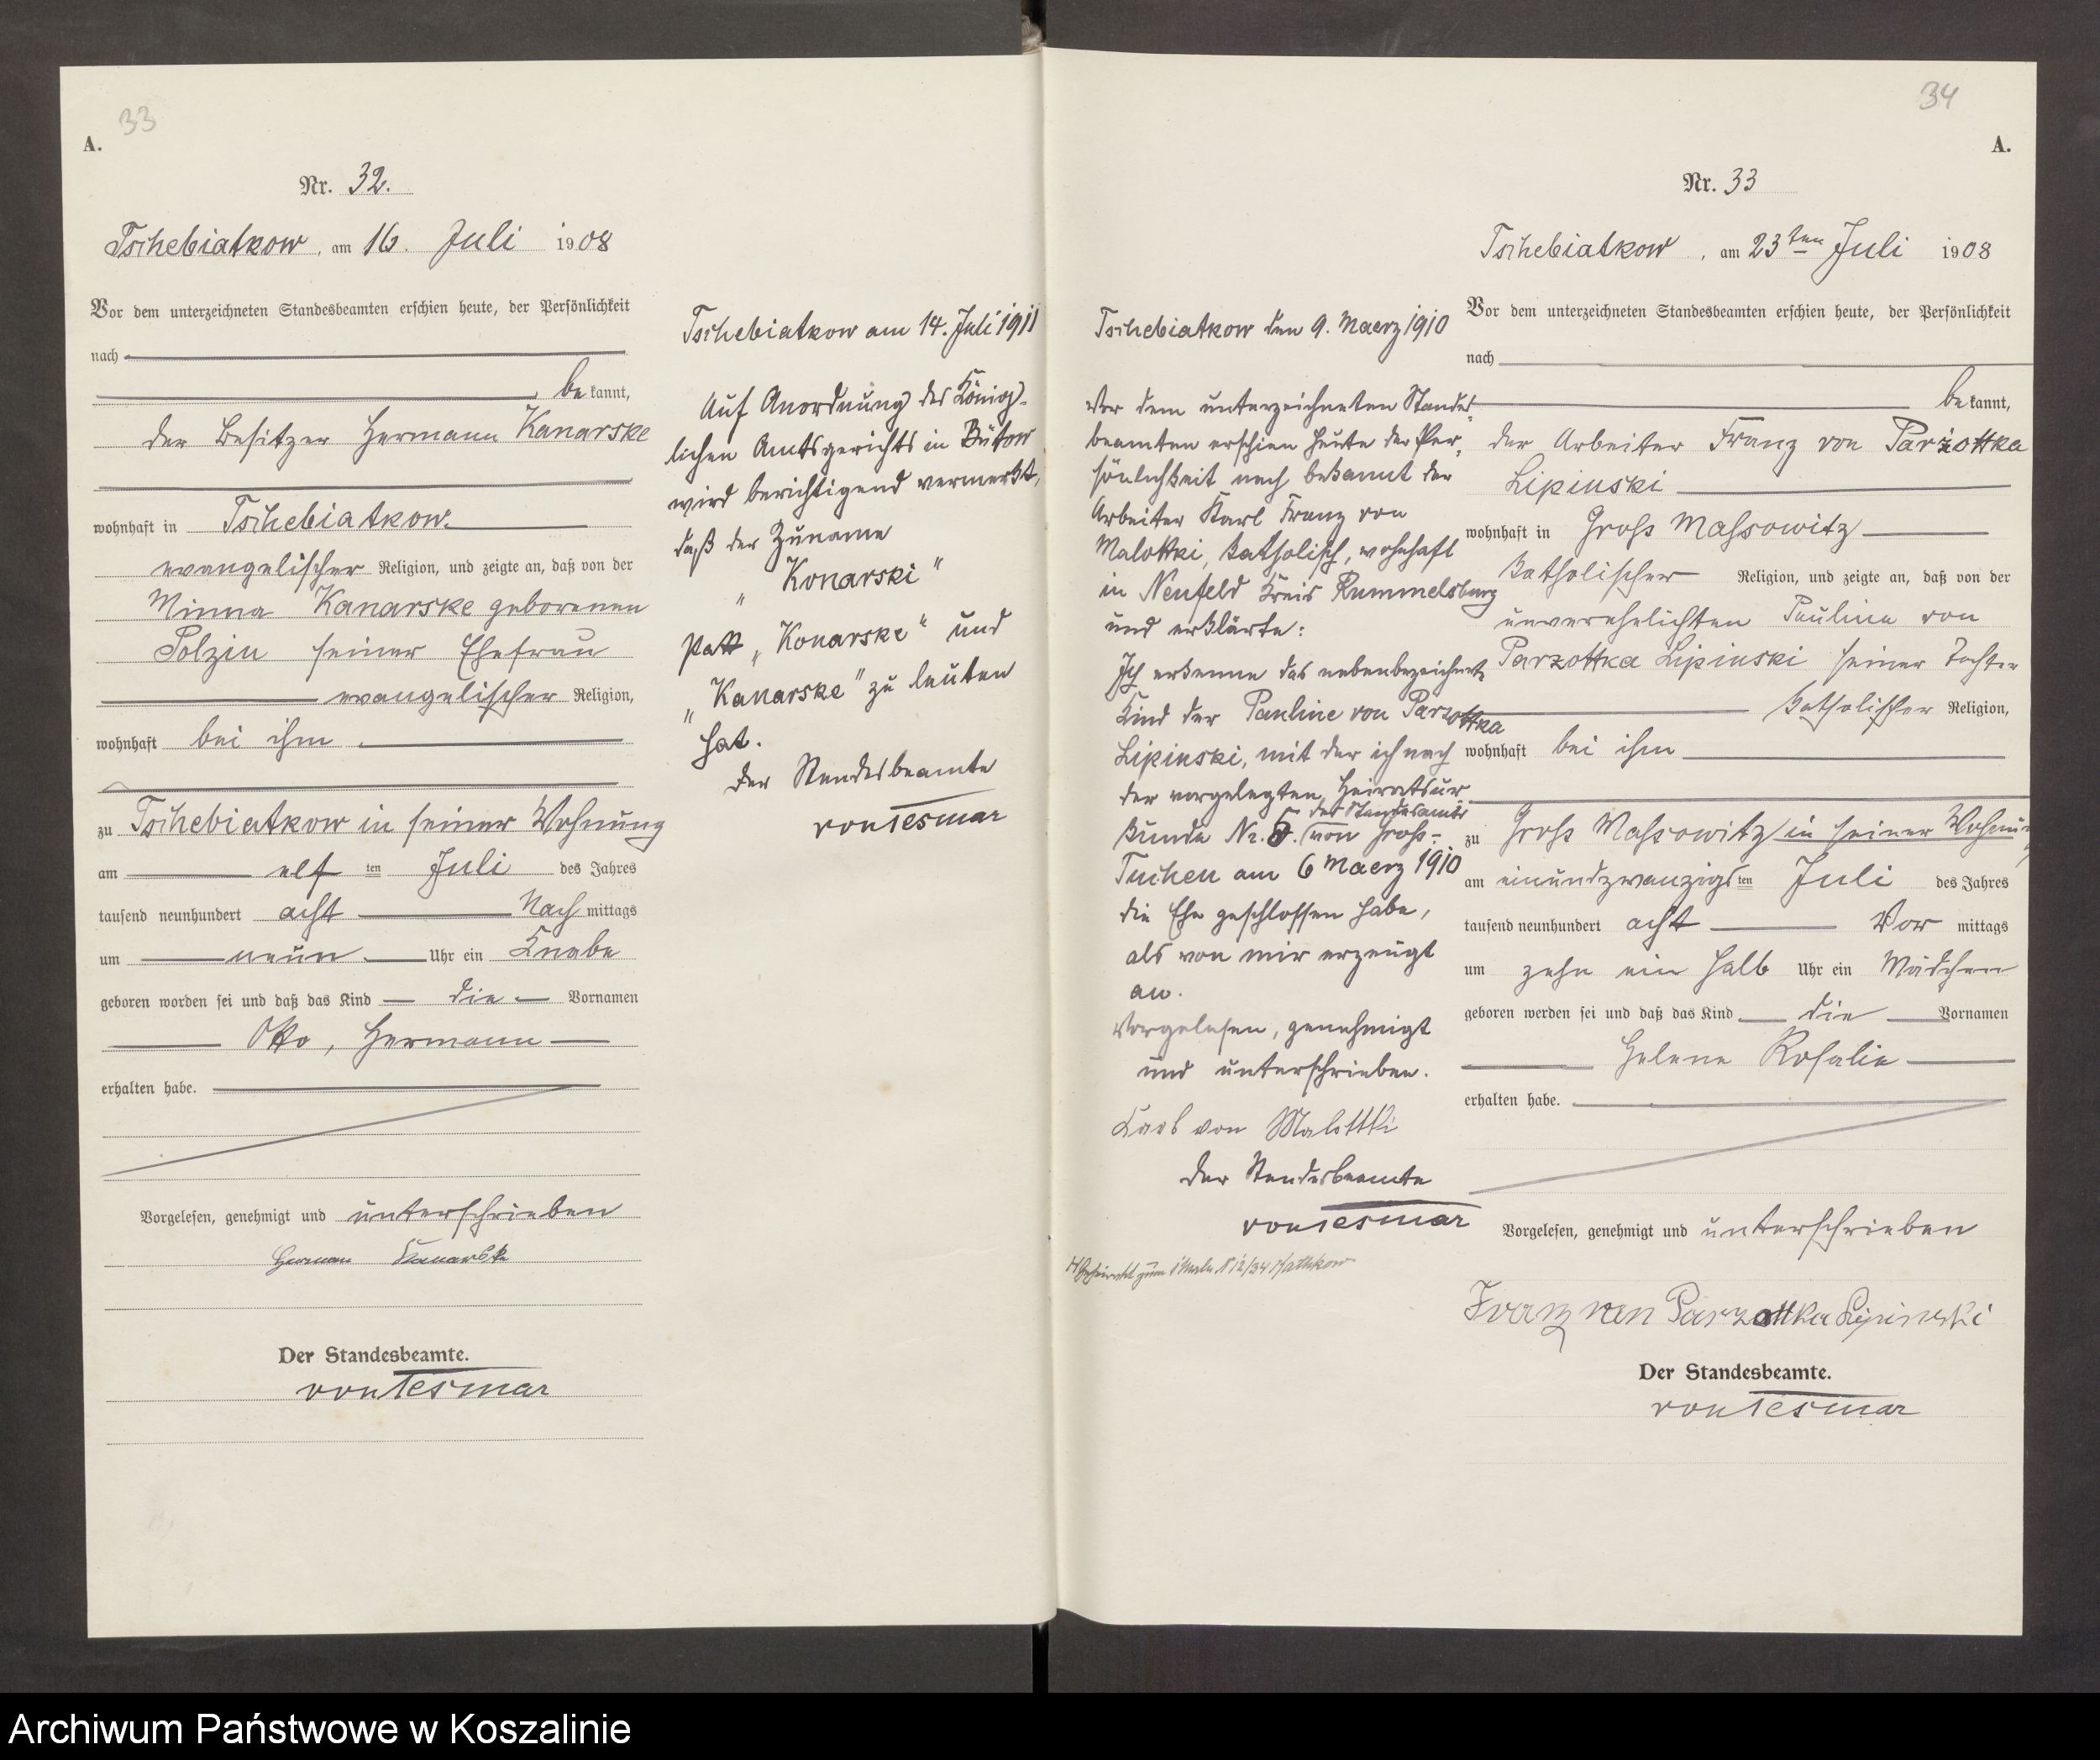 33
A.
Nr. 32.
Tschebiatkow, am 16. Juli 1908
Vor dem unterzeichneten Standesbeamten erschien heute, der Persönlichkeit
nach
be kannt,
der Besitzer Hermann Kanarske
wohnhaft in Tschebiatkow.
evangelischer Religion, und zeigte an, daß von der
Minna Kanarske geborenen
Polzin seiner Ehefrau
evangelischer Religion,
wohnhaft bei ihm
zu Tschebiatkow in seiner Wohnung
am elf ten Juli des Jahres
tausend neunhundert acht Nach mittags
um neun Uhr ein Knabe
geboren worden sei und daß das Kind die Vornamen
Otto, Hermann
erhalten habe.
Vorgelesen, genehmigt und unterschrieben
Herman Kanarske
Der Standesbeamte.
von Tesmar
Tschebiatkow am 14. Juli 1911
Auf Anordnung des König-
lichen Amtsgerichts in Bütow
wird berichtigend vermerkt,
daß der Zuname
„Konarski"
statt „Konarske" und
„Kanarske" zu lauten
hat.
Der Standesbeamte
von Tesmar
34
A.
Nr. 33
Tschebiatkow, am 23ten Juli 1908
Vor dem unterzeichneten Standesbeamten erschien heute, der Persönlichkeit
nach
be kannt,
der Arbeiter Franz von Parzottka
Lipinski
wohnhaft in Gross Massowitz
katholischer Religion, und zeigte an, daß von der
unverehelichten Pauline von
Parzottka Lipinski seiner Tochter
katholischer Religion,
wohnhaft bei ihm
zu Gross Massowitz in seiner Wohnung
am einundzwanzigs ten Juli des Jahres
tausend neunhundert acht Vor mittags
um zehn ein halb Uhr ein Mädchen
geboren worden sei und daß das Kind die Vornamen
Helene Rosalie
erhalten habe.
Vorgelesen, genehmigt und unterschrieben
Franz von Parzottka Lipinski
Der Standesbeamte.
von Tesmar
Tschebiatkow den 9. Maerz 1910
Vor dem unterzeichneten Standes
beamten erschien heute der Per-
sönlichkeit nach bekannt der
Arbeiter Karl Franz von
Malottki, katholisch, wohnhaft
in Neufeld Kreis Rummelsburg
und erklärte:
Ich erkenne das nebenbezeichnete
Kind der Pauline von Parzottka
Lipinski, mit der ich nach
der vorgelegten Heiratsur-
des Standesamts
kunde Nr. 5. von Gross-
Tuchen am 6 Maerz 1910
die Ehe geschlossen habe,
als von mir erzeugt
an.
Vorgelesen, genehmigt
und unterschrieben.
Karl von Malottki
Der Standesbeamte
von Tesmar
Archiwum Państwowe w Koszalinie